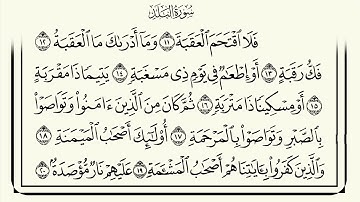 سُورَةُ الْبَلَدِ
فَلَا اقْتَحَمَ الْعَقَبَةَ ١١ وَمَا أَدْرَىٰكَ مَا الْعَقَبَةُ ١٢
فَكُّ رَقَبَةٍ ١٣ أَوْ إِطْعَٰمٌ فِى يَوْمٍ ذِى مَسْغَبَةٍ ١٤ يَتِيمًا ذَا مَقْرَبَةٍ
١٥ أَوْ مِسْكِينًا ذَا مَتْرَبَةٍ ١٦ ثُمَّ كَانَ مِنَ الَّذِينَ ءَامَنُوا۟ وَتَوَاصَوْا۟
بِالصَّبْرِ وَتَوَاصَوْا۟ بِالْمَرْحَمَةِ ١٧ أُو۟لَٰٓئِكَ أَصْحَٰبُ الْمَيْمَنَةِ ١٨
وَالَّذِينَ كَفَرُوا۟ بِـَٔايَٰتِنَا هُمْ أَصْحَٰبُ الْمَشْـَٔمَةِ ١٩ عَلَيْهِمْ نَارٌ مُّؤْصَدَةٌۢ ٢٠